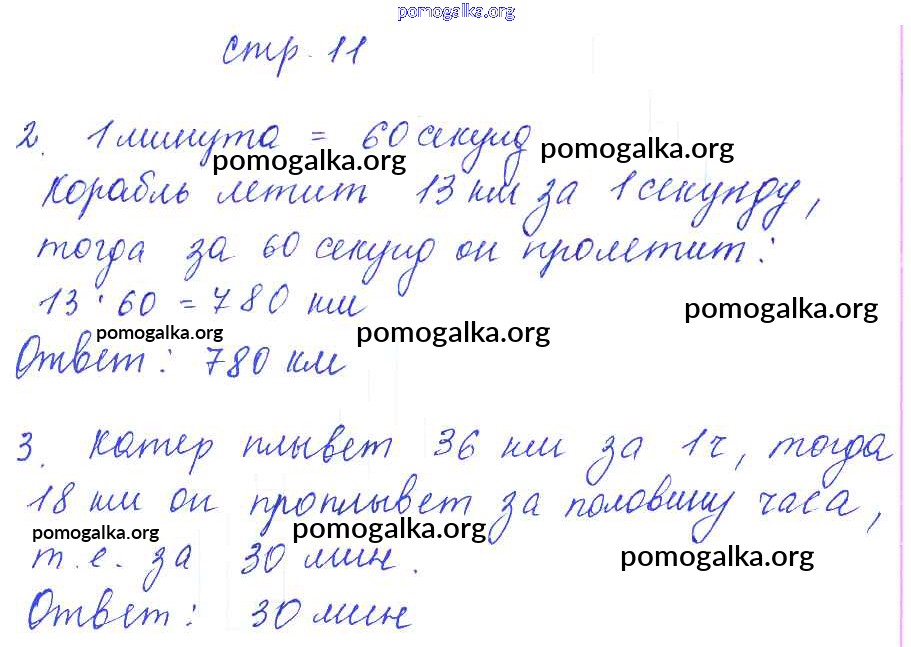 pomogalka.org
стр. 11
2. 1 минута = 60 секунд
pomogalka.org pomogalka.org
корабль летит 13 км за 1 секунду,
тогда за 60 секунд он пролетит:
13 · 60 = 780 км
pomogalka.org
pomogalka.org pomogalka.org
Ответ: 780 км
3. катер плывет 36 км за 1 ч, тогда
18 км он проплывет за половину часа,
pomogalka.org pomogalka.org
т.е. за 30 мин.
pomogalka.org
Ответ: 30 мин